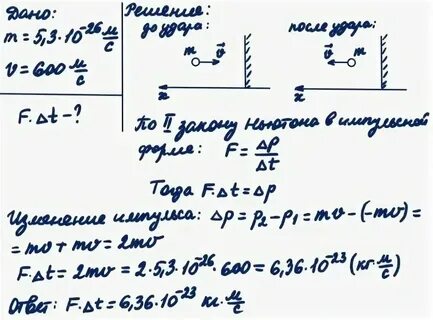 Дано:
m = 5,3·10⁻²⁶ м/с
v = 600 м/с
F·Δt - ?
Решение:
до удара:
после удара:
m v⃗
v⃗ m
x
x
По II закону Ньютона в импульсной
форме: F = Δp/Δt
Тогда F·Δt = Δp
Изменение импульса: Δp = p₂ - p₁ = mv - (-mv) =
= mv + mv = 2mv
F·Δt = 2mv = 2·5,3·10⁻²⁶·600 = 6,36·10⁻²³ (кг·м/с)
Ответ: F·Δt = 6,36·10⁻²³ кг·м/с